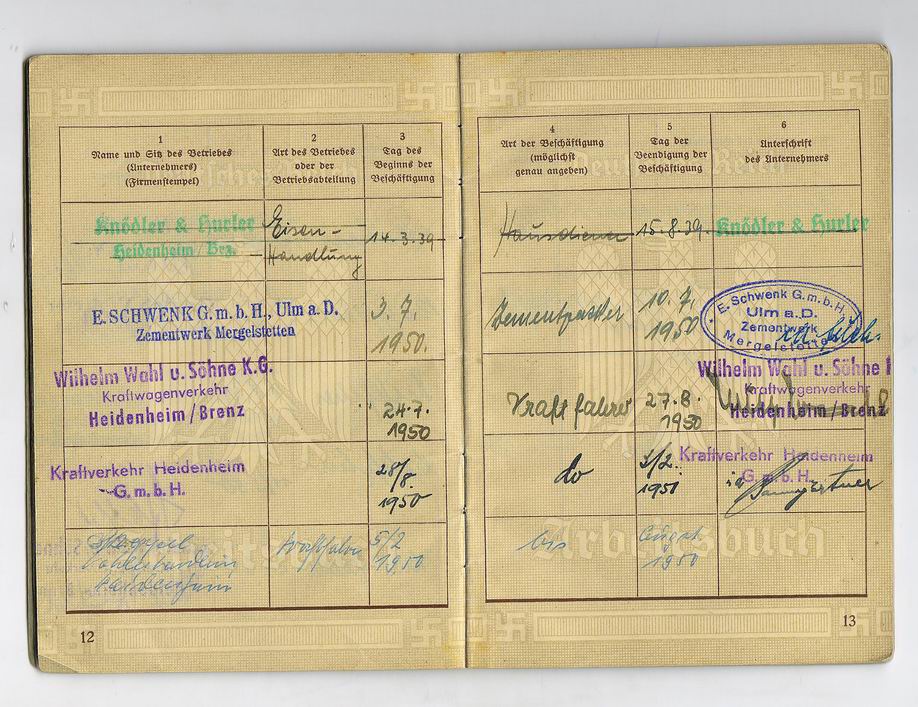 1
Name und Sitz des Betriebes
(Unternehmers)
(Firmenstempel)
2
Art des Betriebes
oder der
Betriebsabteilung
3
Tag des
Beginns der
Beschäftigung
Knödler & Hurler
Heidenheim / Brz.
Eisen-
Handlung
14.3.39
E. SCHWENK G. m. b. H., Ulm a. D.
Zementwerk Mergelstetten
3.7.
1950.
Wilhelm Wahl u. Söhne K.G.
Kraftwagenverkehr
Heidenheim / Brenz
24.7.
1950
Kraftverkehr Heidenheim
G. m. b. H.
28/8.
1950
Kraftfahrer
5/2
1950
12
4
Art der Beschäftigung
(möglichst
genau angeben)
5
Tag der
Beendigung der
Beschäftigung
6
Unterschrift
des Unternehmers
Hausdiener
15.8.39.
Knödler & Hurler
Zementpacker
10.7.
1950
E. Schwenk G. m. b. H.,
Ulm a. D.
Zementwerk
Mergelstetten
Kraftfahrer
27.8.
1950
Wilhelm Wahl u. Söhne
Kraftwagenverkehr
Heidenheim / Brenz
do
3/2.
1951
Kraftverkehr Heidenheim
G. m. b. H.
bis
August
1950
Arbeitsbuch
13